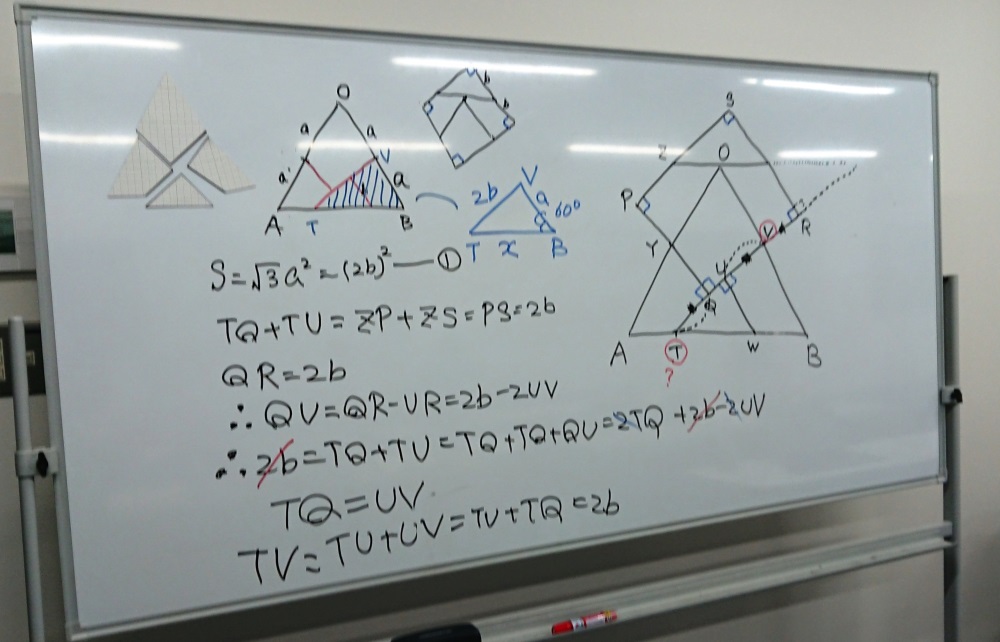 O
a
a
V
a
a
A
T
B
b
b
2b
V
a
60°
T
x
B
S=√3a²=(2b)²—①
TQ+TU=ZP+ZS=PS=2b
QR=2b
∴QU=QR-UR=2b-2UV
∴2b=TQ+TU=TQ+TQ+QU=2TQ+2b-2UV
TQ=UV
TV=TU+UV=TU+TQ=2b
S
Z
O
P
Y
V
R
U
Q
A
T
W
B
?